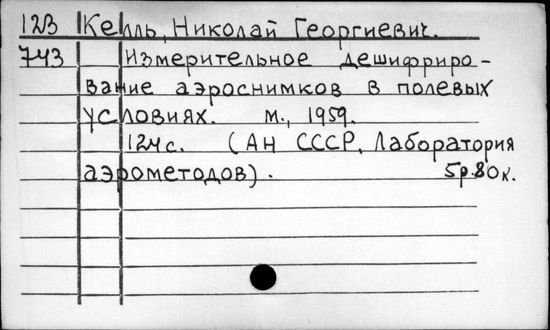 123 Келль, Николай Георгиевич.
743 Измерительное дешифриро-
вание аэроснимков в полевых
условиях. м., 1959.
124с. (Ан СССР. Лаборатория
аэрометодов). 5р.80к.